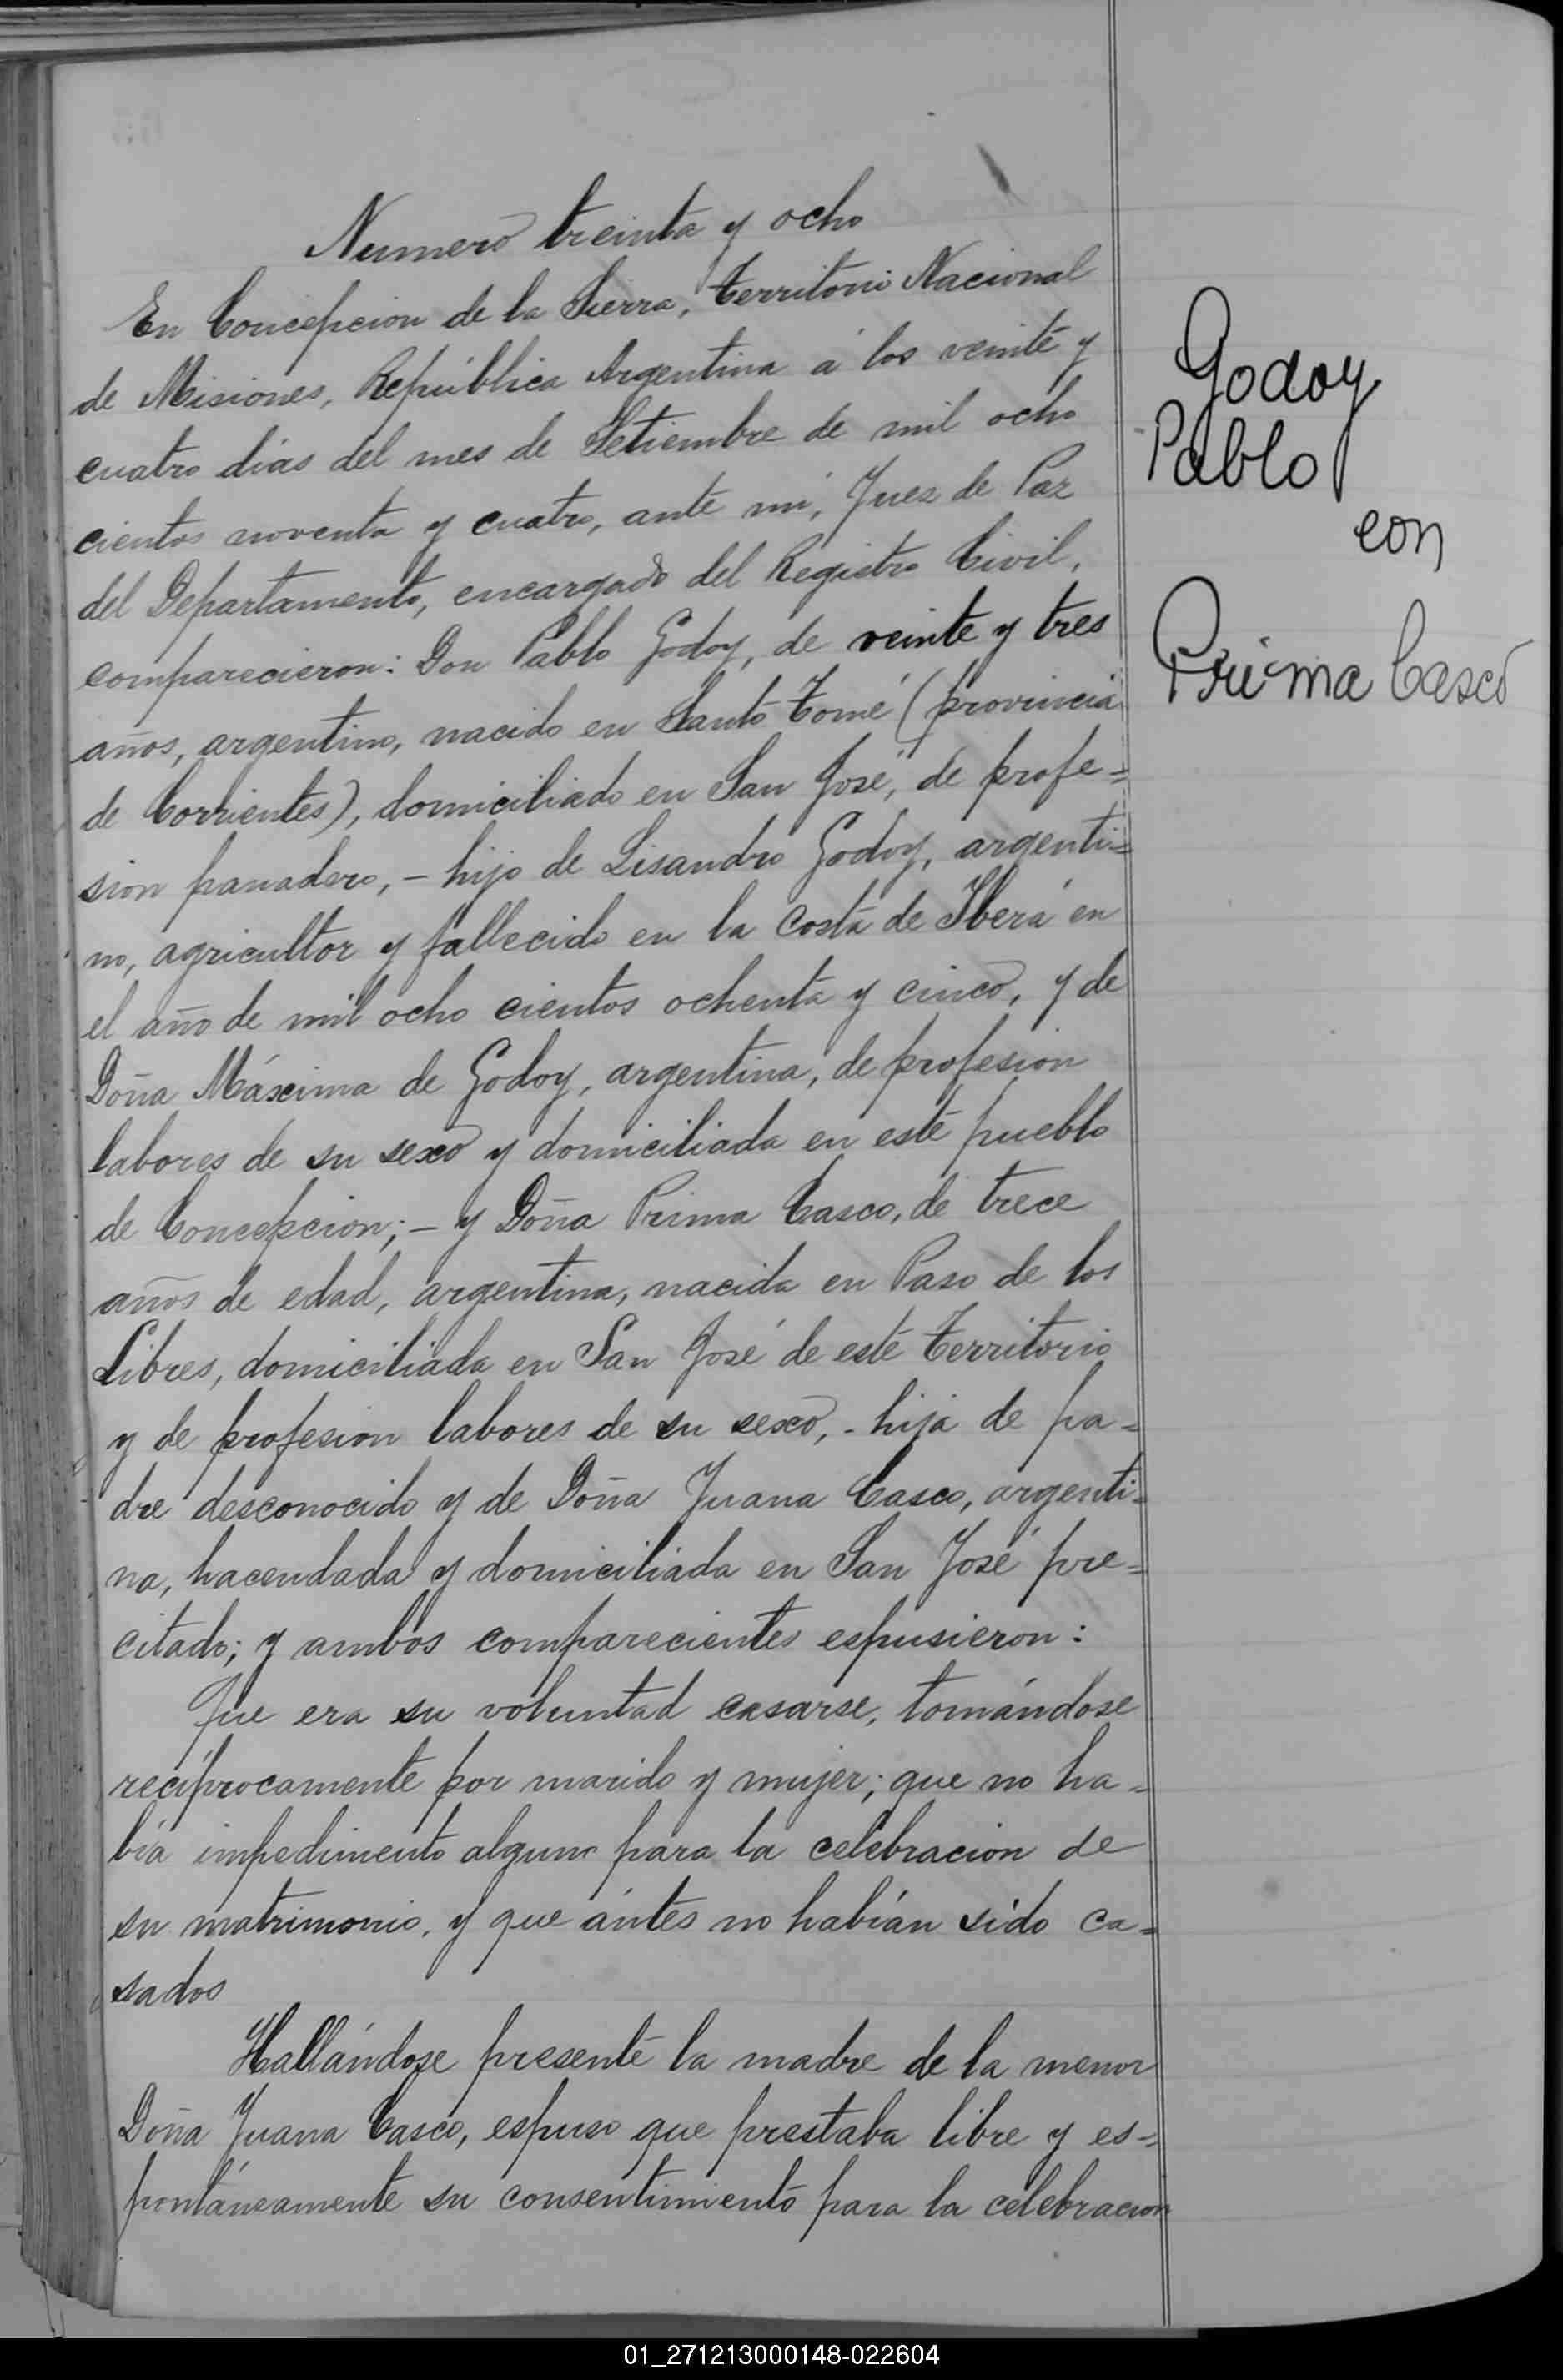 Numero treinta y ocho
En Concepcion de la Sierra, Territorio Nacional
de Misiones, República Argentina á los veinte y
cuatro dias del mes de Setiembre de mil ocho
cientos noventa y cuatro, ante mi, Juez de Paz
del Departamento, encargado del Registro Civil,
comparecieron: Don Pablo Godoy, de veinte y tres
años, argentino, nacido en Santo Tomé (provincia
de Corrientes), domiciliado en San José, de profe=
sion panadero, - hijo de Lisandro Godoy, argenti=
no, agricultor y fallecido en la costa de Iberá en
el año de mil ocho cientos ochenta y cinco, y de
Doña Máxima de Godoy, argentina, de profesion
labores de su sexo y domiciliada en este pueblo
de Concepcion; - y Doña Prima Casco, de trece
años de edad, argentina, nacida en Paso de los
Libres, domiciliada en San José de este Territorio
y de profesion labores de su sexo, - hija de pa=
dre desconocido y de Doña Juana Casco, argenti=
na, hacendada y domiciliada en San José pre=
citado; y ambos comparecientes espusieron:
Que era su voluntad casarse, tomándose
recíprocamente por marido y mujer; que no ha=
bía impedimento alguno para la celebracion de
su matrimonio, y que ántes no habían sido ca=
sados
Hallándose presente la madre de la menor
Doña Juana Casco, espuso que prestaba libre y es=
pontáneamente su consentimiento para la celebracion
Godoy
Pablo
con
Prima Casco
01_271213000148-022604